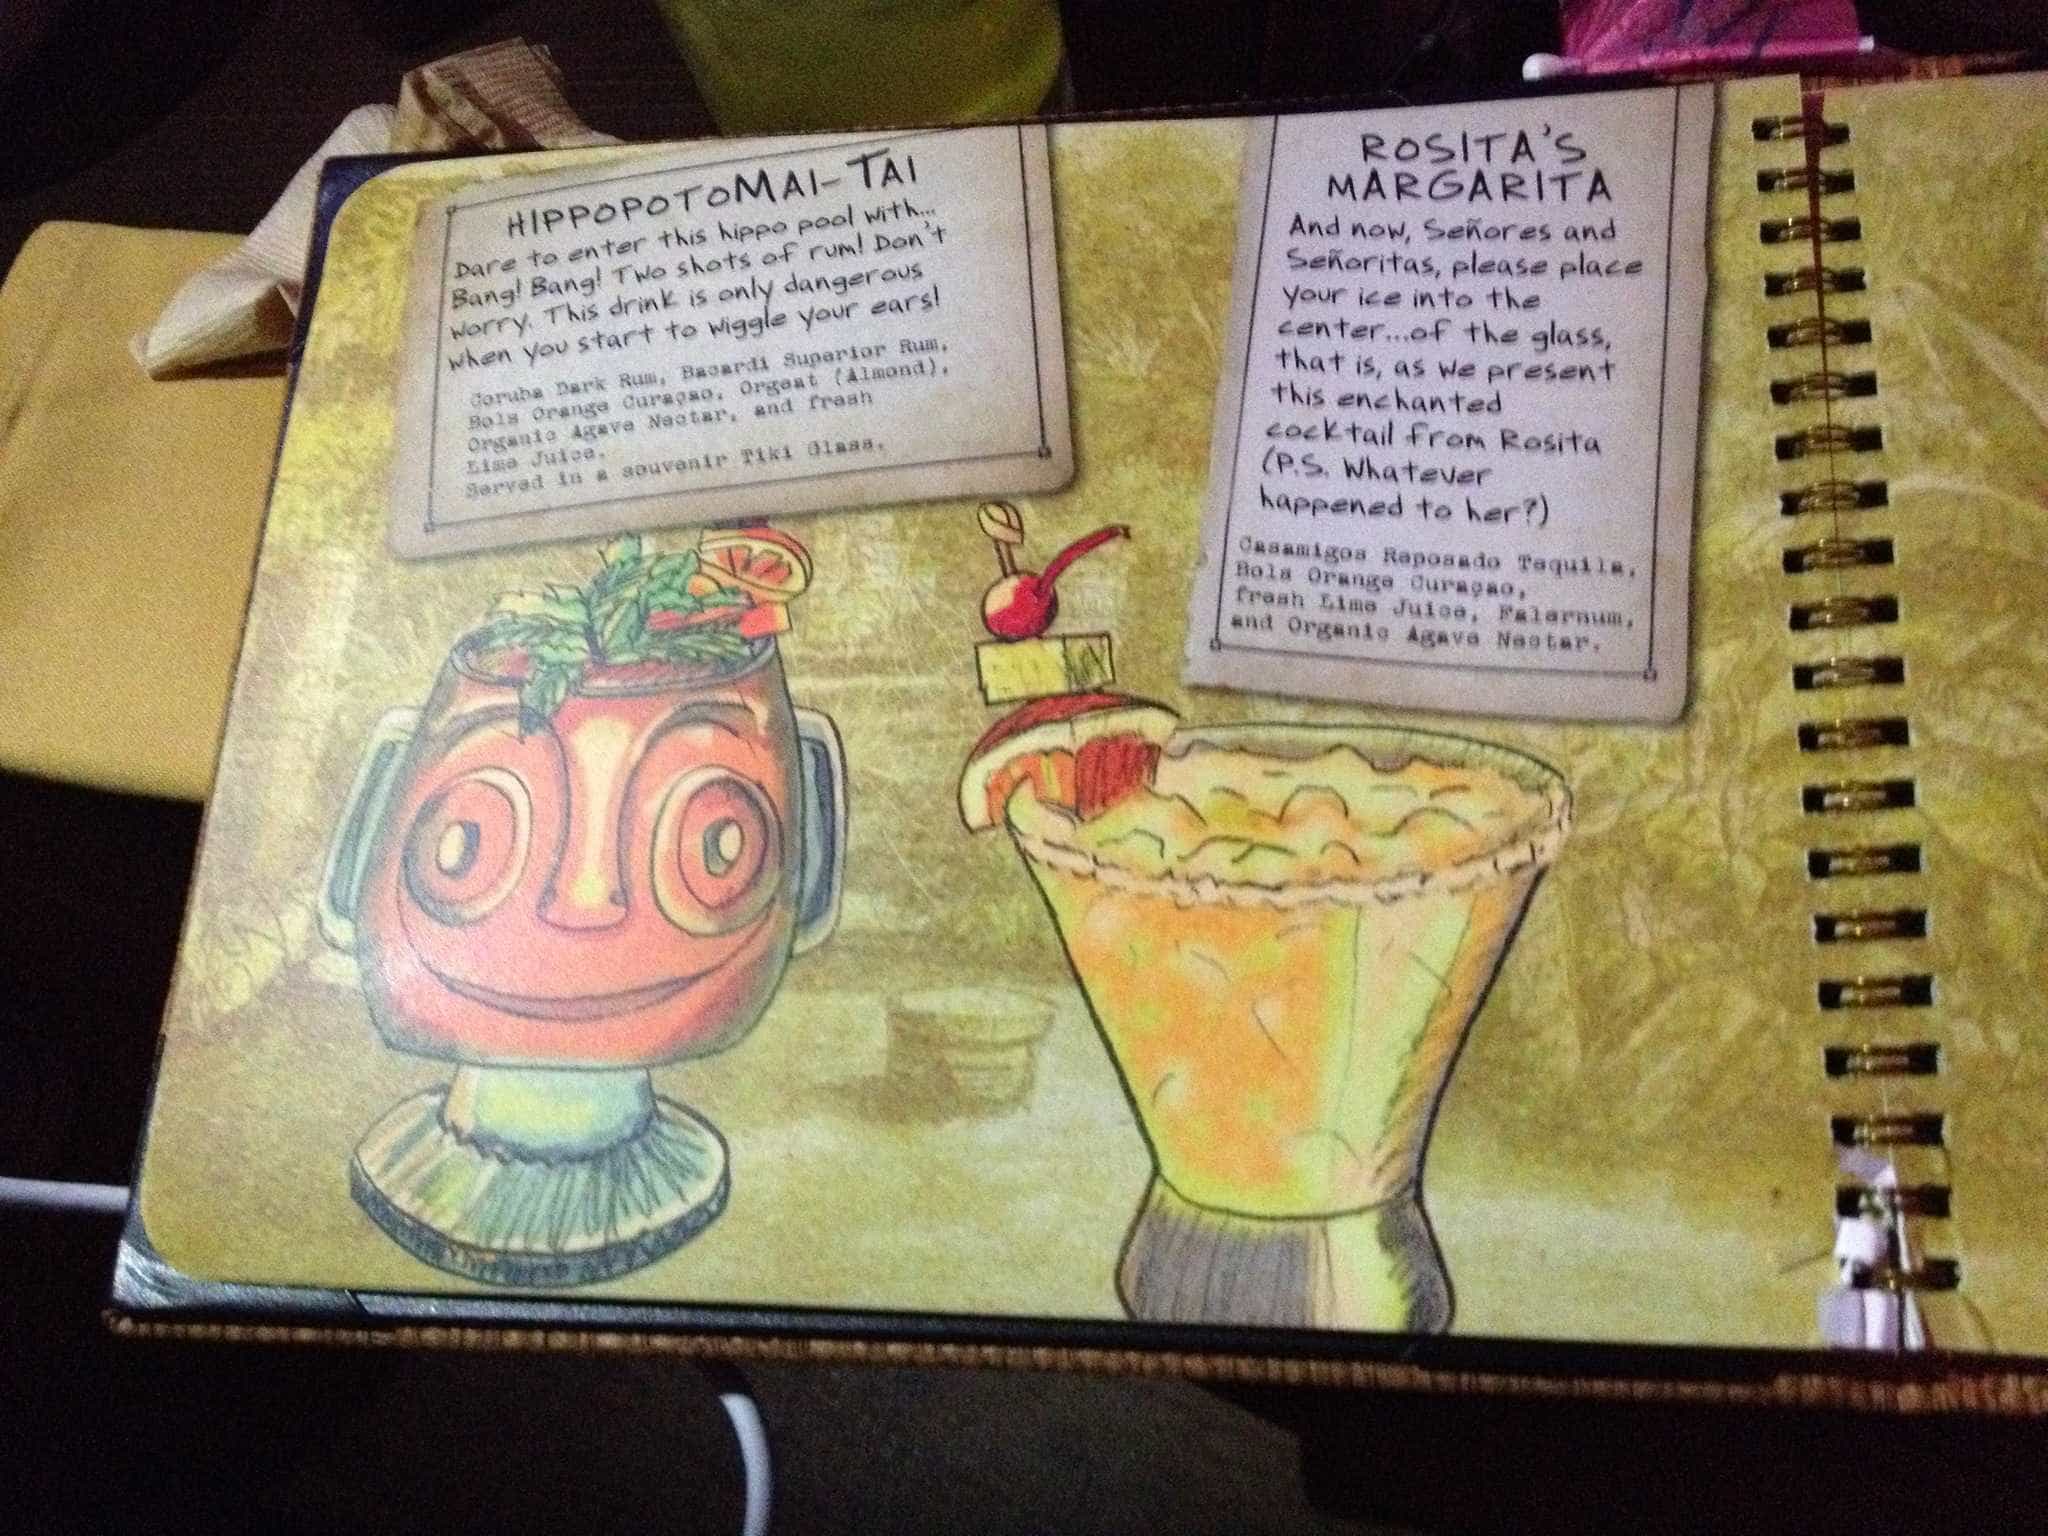 HIPPOPOTOMAI-TAI
Dare to enter this hippo pool with...
Bang! Bang! Two shots of rum! Don't
worry. This drink is only dangerous
when you start to wiggle your ears!
Coruba Dark Rum, Bacardi Superior Rum,
Bols Orange Curaçao, Orgeat (Almond),
Organic Agave Nectar, and fresh
Lime Juice.
Served in a souvenir Tiki Glass.
ROSITA'S
MARGARITA
And now, Señores and
Señoritas, please place
your ice into the
center...of the glass,
that is, as we present
this enchanted
cocktail from Rosita
(P.S. Whatever
happened to her?)
Casamigos Reposado Tequila,
Bols Orange Curaçao,
fresh Lime Juice, Falernum,
and Organic Agave Nectar.